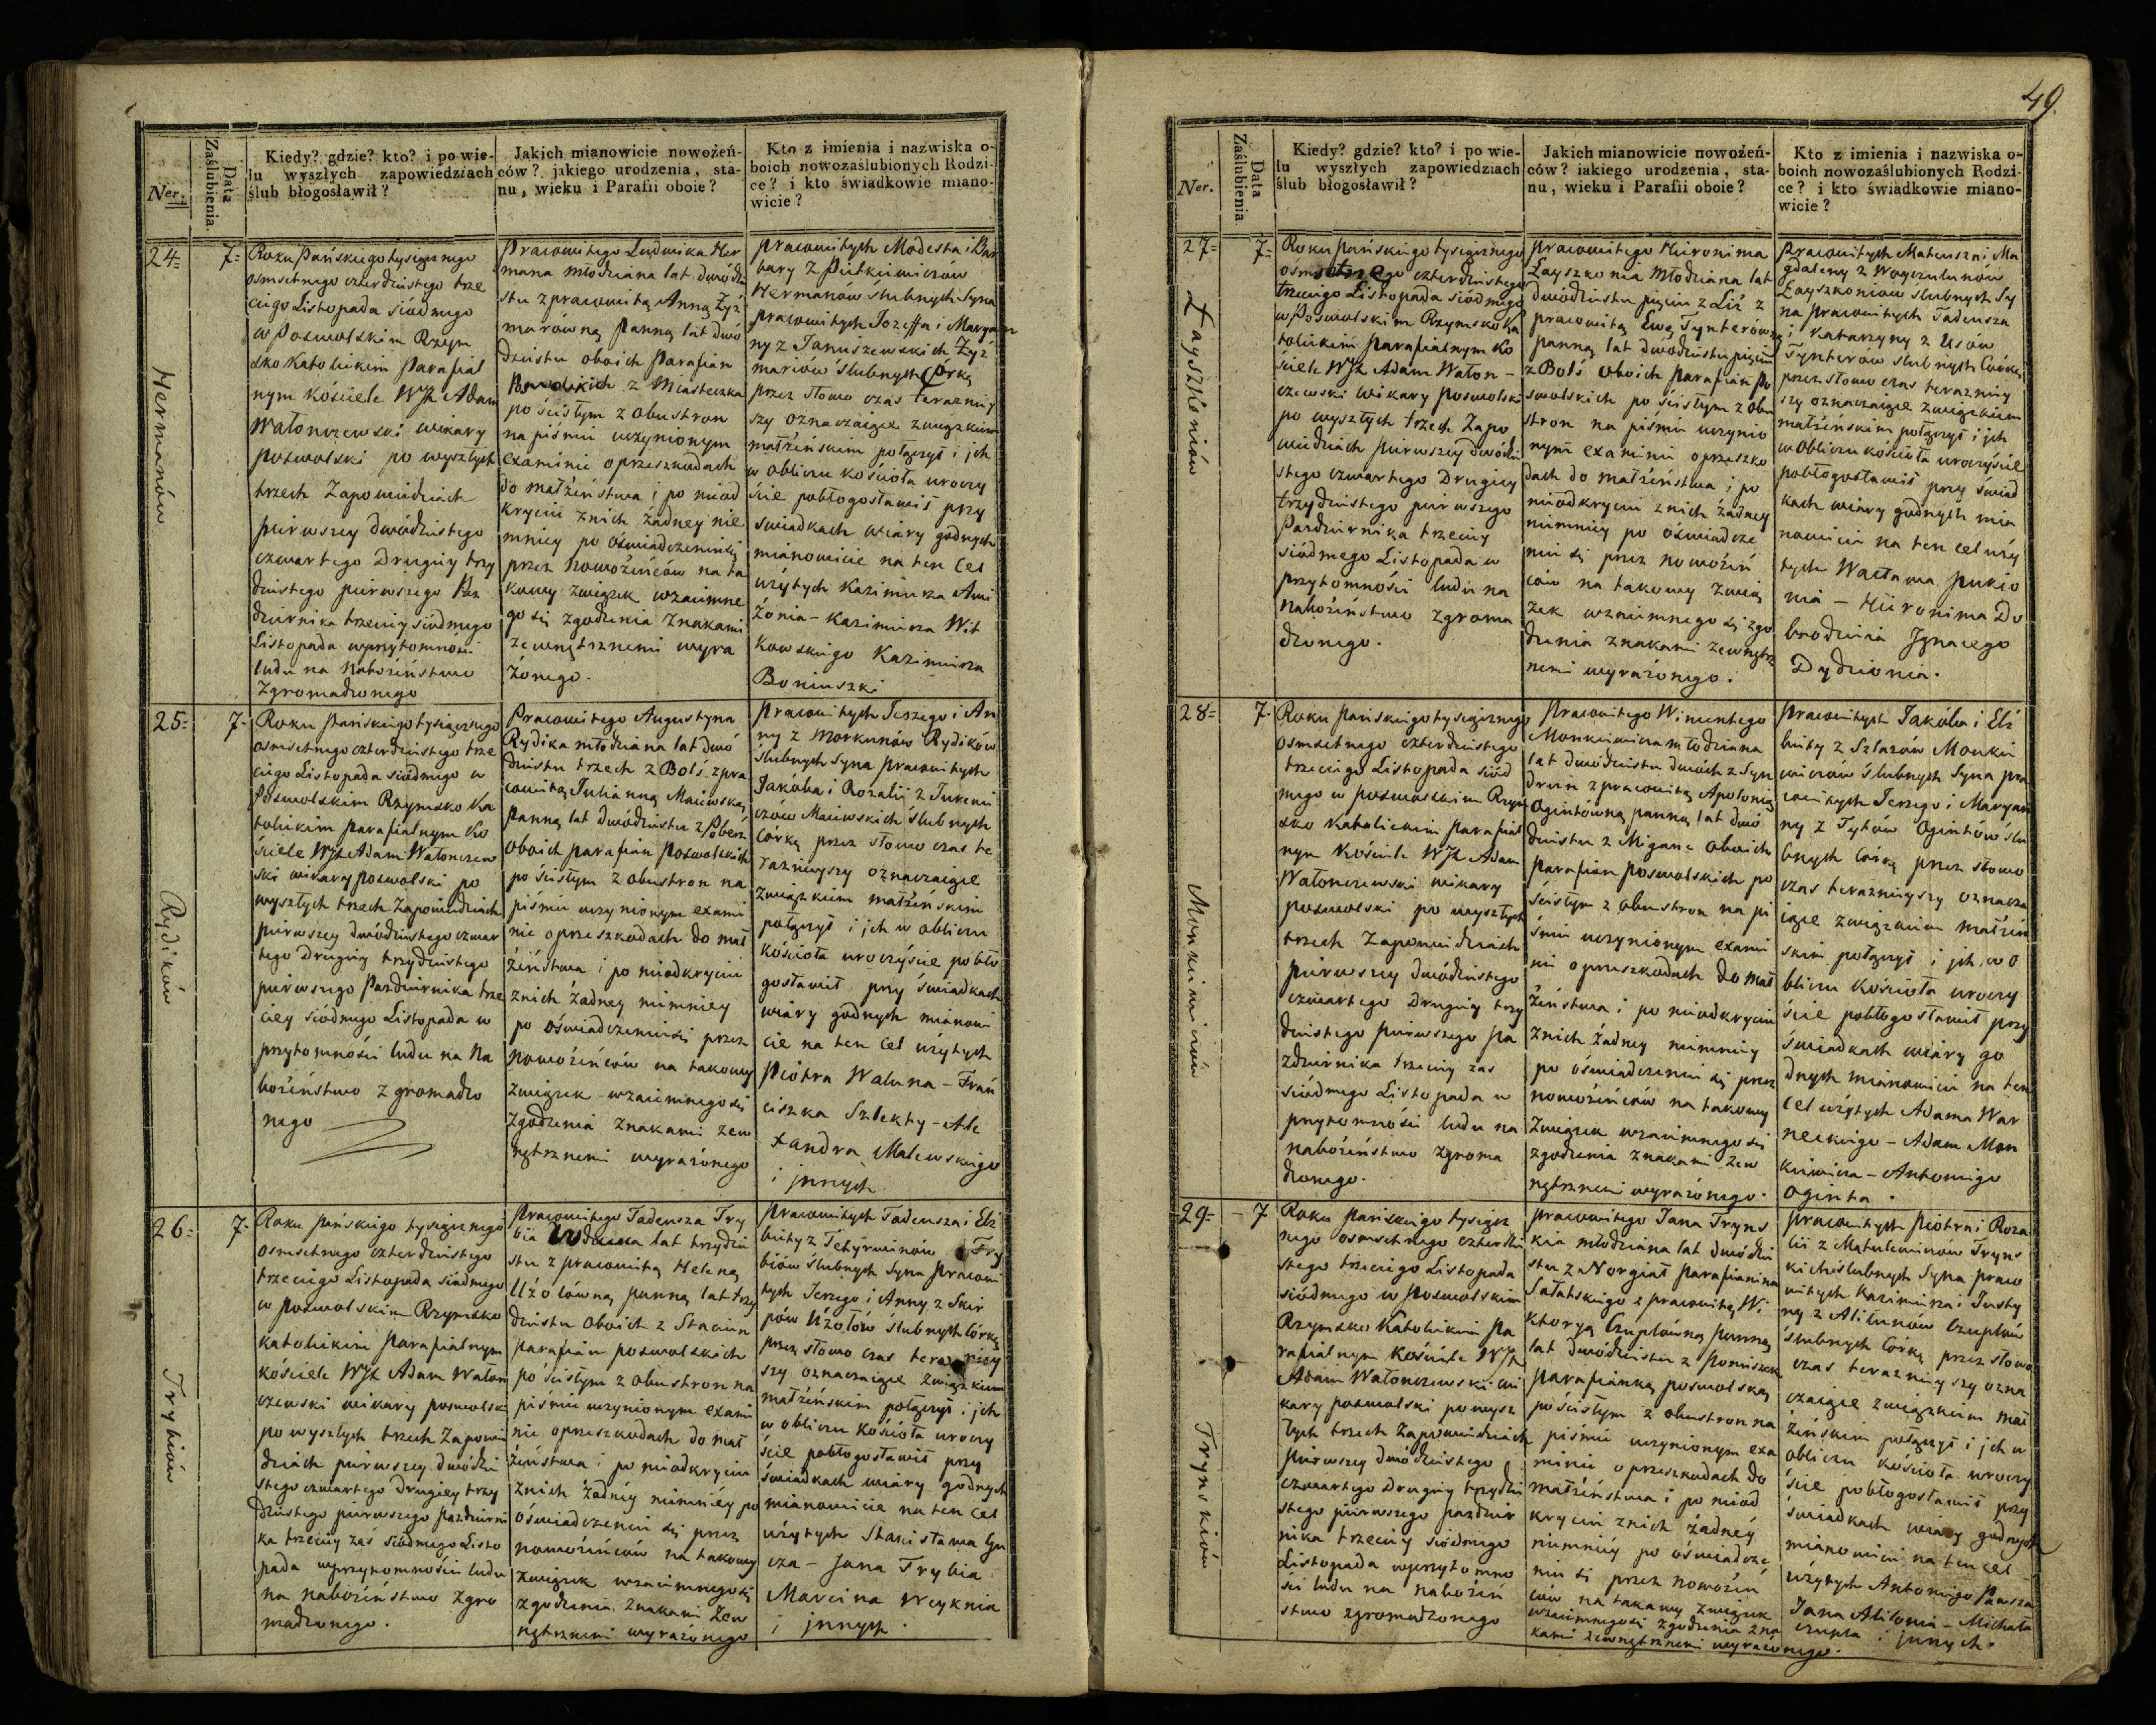 Ner.
Data Zaślubienia.
Kiedy? gdzie? kto? i po wie-
lu wyszłych zapowiedziach
ślub błogosławił?
Jakich mianowicie nowożeń-
ców? jakiego urodzenia, sta-
nu, wieku i Parafii oboie?
Kto z imienia i nazwiska o-
boich nowozaślubionych Rodzi-
ce? i kto świadkowie miano-
wicie?
24
7
Hermanów
Roku Pańskiego tysiącznego
osmsetnego czterdziestego trze
ciego Listopada siódmego
w Poswolskim Rzym
sko Katolickim Parafial
nym Kościele WJX Adam
Watonczewski wikary
poswolski po wyszłych
trzech Zapowiedziach
pierwszey dwódziestego
czwartego Drugiey trzy
dziestego pierwszego Paz
dziernika trzeciey siódmego
Listopada w przytomności
ludu na Nabożeństwo
Zgromadzonego
Pracowitego Ludwika Her
mana młodziana lat dwódzie
stu z pracowitą Anną Żyź
marówną Panną lat dwó
dziestu oboich Parafian
z Miasteczka
po ścisłym z obustron
na piśmie uczynionym
examinie o przeszkodach
do małżeństwa i po nieod
kryciu z nich żadney nie
mniey po oświadczeniu się
przez Nowożeńców na ta
kowy związek wzaiemne
go się zgodzenia znakami
zewnętrznemi wyra
żonego.
Pracowitych Modesta i Bar
bary z Pietkiewiczow
Hermanów ślubnych Syna
pracowitych Jozeffa i Maryan
ny z Januszewskich Żyź
mariów ślubnych Córką
przez słowo czas teraźniey
szy oznaczaiące związkiem
małżeńskim połączył i ich
w obliczu kościoła uroczy
ście pobłogosławił przy
świadkach wiary godnych
mianowicie na ten cel
użytych Kazimierza Awi
żonia - Kazimierza Wit
kowskiego Kazimierza
Boniuszki
25
7
Rydików
Roku Pańskiego tysiącznego
osmsetnego czterdziestego trze
ciego Listopada siódmego w
Poswolskim Rzymsko Ka
tolickim parafialnym Ko
ściele WJX Adam Watonczew
ski wikary poswolski po
wyszłych trzech Zapowiedziach
pierwszey dwódziestego czwar
tego Drugiey trzydziestego
pierwszego Pazdziernika trze
ciey siódmego Listopada w
przytomności ludu na Na
bożeństwo zgromadzo
nego
Pracowitego Augustyna
Rydika młodziana lat dwó
dziestu trzech z Bolś z pra
cowitą Julianną Maiewską
panną lat dwódziestu z Poberż
oboich parafian poswolskich
po ścisłym z obustron na
piśmie uczynionym exami
nie o przeszkodach do mał
żeństwa i po nieodkryciu
z nich żadney niemniey
po oświadczeniu się przez
nowożeńców na takowy
związek wzaiemnego się
zgodzenia znakami zew
nętrznemi wyrażonego
Pracowitych Jerzego i An
ny z Morkunów Rydików
ślubnych Syna pracowitych
Jakóba i Rozalij z Turcewi
czów Maiewskich ślubnych
Córką przez słowo czas te
raznieyszy oznaczaiące
związkiem małżeńskim
połączył i ich w obliczu
kościoła uroczyście pobło
gosławił przy świadkach
wiary godnych mianowi
cie na ten cel użytych
Piotra Waluna - Fran
ciszka Szlekty - Ale
xandra Malewskiego
i jnnych
26
7
Trybiów
Roku Pańskiego tysiącznego
osmsetnego czterdziestego
trzeciego Listopada siódmego
w poswolskim Rzymsko
katolickim Parafialnym
kościele WJX Adam Waton
czewski wikary poswolski
po wyszłych trzech Zapowie
dziach pierwszey dwódzie
stego czwartego Drugiey trzy
dziestego pierwszego pazdzierni
ka trzeciey zaś siódmego Listo
pada w przytomności ludu
na nabożeństwo zgro
madzonego.
Pracowitego Tadeusza Try
bia Wdowca lat trzydzie
stu z pracowitą Heleną
Użołówną panną lat trzy
dziestu oboich z Staciun
parafian poswolskich
po ścisłym z obustron na
piśmie uczynionym exami
nie o przeszkodach do mał
żeństwa i po nieodkryciu
z nich żadney niemniey po
oświadczeniu się przez
nowożeńców na takowy
związek wzaiemnego się
zgodzenia znakami zew
nętrznemi wyrażonego
Pracowitych Tadeusza i Elż
biety z Tetyrwinów Try
biów ślubnych Syna pracowi
tych Jerzego i Anny z Skir
pów Użołów ślubnych Córką
przez słowo czas teraźniey
szy oznaczaiące związkiem
małżeńskim połączył i ich
w obliczu kościoła uroczy
ście pobłogosławił przy
świadkach wiary godnych
mianowicie na ten cel
użytych Stanisława Gu
cza - Jana Trybia
Marcina Weyknia
i jnnych.
49.
Ner.
Data Zaślubienia
Kiedy? gdzie? kto? i po wie-
lu wyszłych zapowiedziach
ślub błogosławił?
Jakich mianowicie nowożeń-
ców? iakiego urodzenia, sta-
nu, wieku i Parafii oboie?
Kto z imienia i nazwiska o-
boich nowozaślubionych Rodzi-
ce? i kto świadkowie miano-
wicie?
27
7
Łayszkoniów
Roku Pańskiego tysiącznego
czterdziestego
trzeciego Listopada siódmego
w Poswolskim Rzymsko Ka
tolickim parafialnym Ko
ściele WJX Adam Waton-
czewski wikary poswolski
po wyszłych trzech Zapo
wiedziach pierwszey dwódzie
stego czwartego Drugiey
trzydziestego pierwszego
Pazdziernika trzeciey
siódmego Listopada w
przytomności ludu na
Nabożeństwo zgroma
dzonego.
Pracowitego Hieronima
Łayszkonia młodziana lat
dwódziestu pięciu z Liż z
pracowitą Ewą Tynterówną
panną lat dwódziestu pięciu
z Bolś oboich parafian Po
swolskich po ścisłym z obu
stron na piśmie uczynio
nym examinie o przeszko
dach do małżeństwa i po
nieodkryciu z nich żadney
niemniey po oświadcze
niu się przez nowożeń
ców na takowy zwią
zek wzaiemnego się zgo
dzenia znakami zewnętrz
nemi wyrażonego.
Pracowitych Mateusza i Ma
gdaleny z Woyczulunów
Łayszkoniow ślubnych Sy
na pracowitych Tadeusza
i Katarzyny z Usów
Tynterów ślubnych Córką
przez słowo czas teraźniey
szy oznaczaiące związkiem
małżeńskim połączył i ich
w obliczu kościoła uroczyście
pobłogosławił przy świad
kach wiary godnych mia
nowicie na ten cel uży
tych Wacława Pukio
nia - Hieronima Do
browolskia Jgnacego
Dydzionia.
28
7
Monkiewiczów
Roku Pańskiego tysiącznego
osmsetnego czterdziestego
trzeciego Listopada siód
mego w poswolskim Rzym
sko Katolickim parafial
nym Kościele WJX Adam
Watonczewski wikary
poswolski po wyszłych
trzech Zapowiedziach
pierwszey dwódziestego
czwartego Drugiey trzy
dziestego pierwszego Pa
zdziernika trzeciey zas
siódmego Listopada w
przytomności ludu na
nabożeństwo zgroma
dzonego.
Pracowitego Wincentego
Monkiewicza młodziana
lat dwódziestu dwóch z Syn
drun z pracowitą Apolonią
Ogintówną panną lat dwó
dziestu z Migan oboich
parafian poswolskich po
ścisłym z obustron na pi
śmie uczynionym exami
nie o przeszkodach do mał
żeństwa i po nieodkryciu
z nich żadney niemniey
po oświadczeniu się przez
nowożeńców na takowy
związek wzaiemnego się
zgodzenia znakami zew
nętrznemi wyrażonego.
Pracowitych Jakóba i Elż
biety z Szlazów Monkie
wiczów ślubnych Syna pra
cowitych Jerzego i Maryan
ny z Tytów Ogintów ślu
bnych Córką przez słowo
czas teraznieyszy oznacza
iące związkiem małżeń
skim połączył i ich w o
bliczu kościoła uroczy
ście pobłogosławił przy
świadkach wiary go
dnych mianowicie na ten
cel użytych Adama War
neckiego - Adam Mon
kiewicza - Antoniego
Oginta.
29
7
Trynskiów
Roku Pańskiego tysiącz
nego osmsetnego czterdzie
stego trzeciego Listopada
siódmego w Poswolskim
Rzymsko Katolickim Pa
rafialnym kościele WJX
Adam Watonczewski wi
kary poswolski po wysz
łych trzech Zapowiedziach
pierwszey dwódziestego
czwartego Drugiey trzydzie
stego pierwszego pazdzier
nika trzeciey siódmego
Listopada w przytomno
ści ludu na nabożeń
stwo zgromadzonego
Pracowitego Jana Tryns
kia młodziana lat dwódzie
stu z Norgiał parafianina
Sałatskiego z pracowitą Wi
ktoryą Czuplówną panną
lat dwódziestu z Poniszek
parafianką poswolską
po ścisłym z obustron na
piśmie uczynionym exa
minie o przeszkodach do
małżeństwa i po nieod
kryciu z nich żadney
niemniey po oświadcze
niu się przez nowożeń
ców na takowy związek
wzaiemnego się zgodzenia zna
kami zewnętrznemi wyrażonego.
Pracowitych Piotra i Roza
lii z Matulewiczów Tryns
kich ślubnych Syna praco
witych Kazimierza i Justy
ny z Alilunów Czuplów
ślubnych Córką przez słowo
czas teraznieyszy ozna
czaiące związkiem mał
żeńskim połączył i ich w
obliczu kościoła uroczy
ście pobłogosławił przy
świadkach wiary godnych
mianowicie na ten cel
użytych Antoniego Pawsza
Jana Alilonia - Michała
Czupla i jnnych.